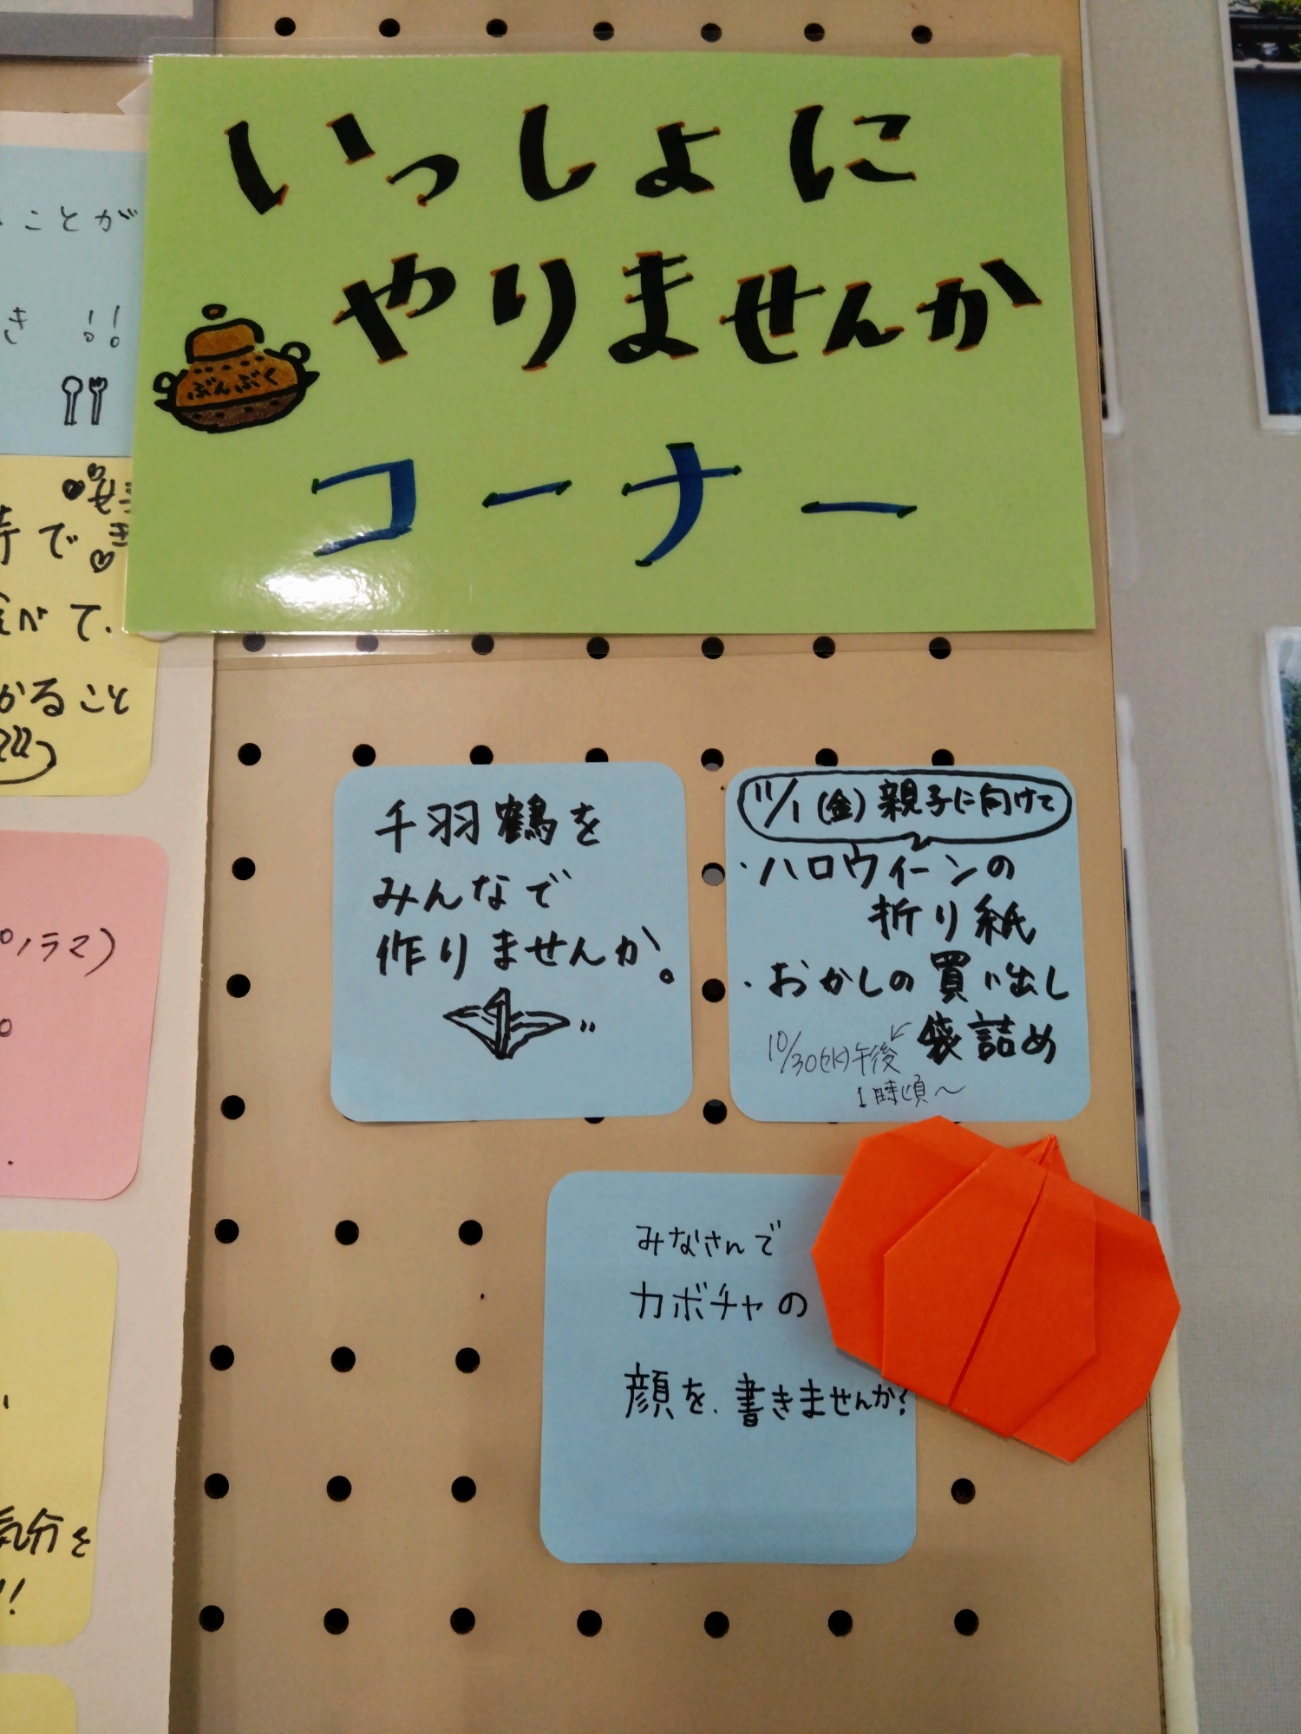 いっしょに
やりませんか
ぶんぶく
コーナー
ことが
き !!
待で
べて、
かること
千羽鶴を
みんなで
作りませんか。
11/1(金)親子に向けて
・ハロウィーンの
折り紙
・おかしの買い出し
袋詰め
10/30(水)午後
1時頃~
みなさんで
カボチャの
顔を、書きませんか?
ノラマ)
気分を
!!